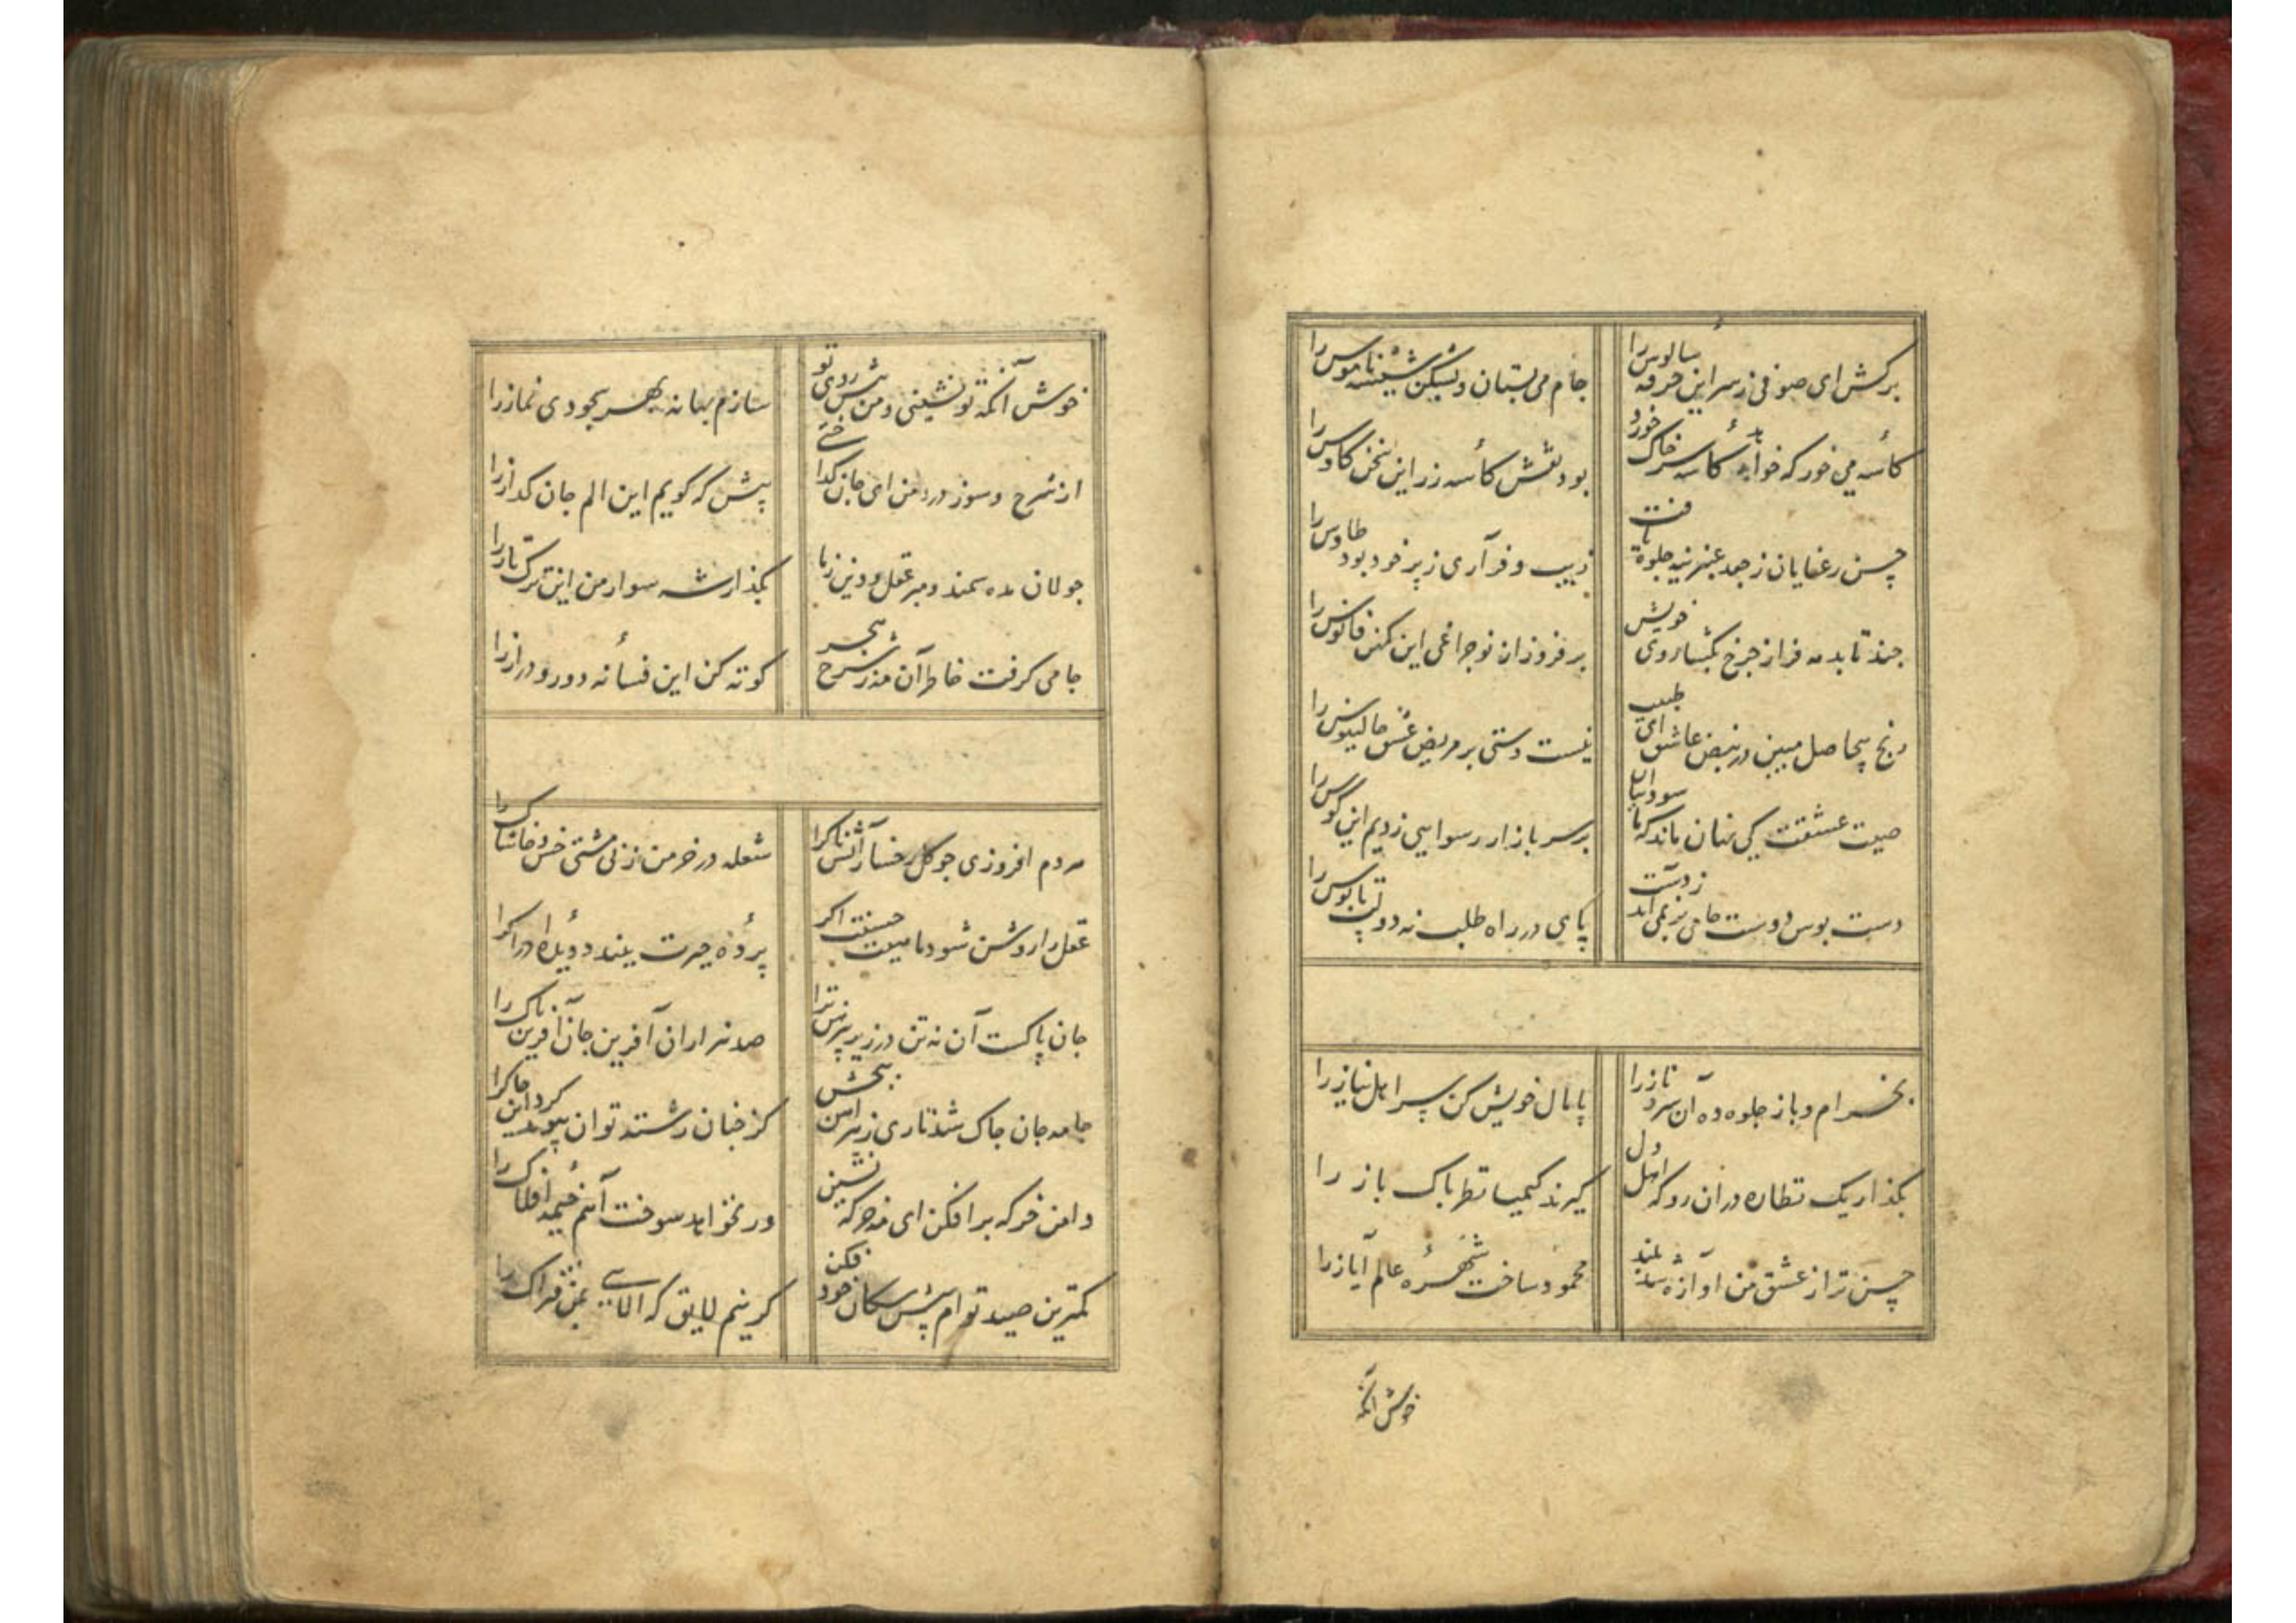 برکش ای صوفی ز سر این خرقه سالوس را
جام می بستان و بشکن شیشه ناموس را
کاسه می خور که خواهد کاسه سر خاک خورد
بود نقش کاسه زر این سخن کاوس را
حسن رعنایان ز جعد عنبرین جلوه یافت
زیب و فر آری ز پر خود بود طاوس را
چند تابد مه فراز چرخ بگشا روی خویش
بر فروزان نو چراغی این کهن فانوس را
رنج بیحاصل مبین در نبض عاشق ای طبیب
نیست دستی بر مریض عشق جالینوس را
صیت عشقت کی نهان ماند که با سوداییان
بر سر بازار رسوایی زدیم این کوس را
دست بوس دوست جامی بر نمی آید ز دست
پای در راه طلب نه دولت پابوس را
بخرام و باز جلوه ده آن سرو ناز را
پامال خویش کن سر اهل نیاز را
بگذار یک نظاره در آن رو که اهل دل
گیرند کیمیا نظر پاک باز را
حسن ترا ز عشق من آوازه شد بلند
محمود ساخت شهره عالم ایاز را
خوش آنکه
خوش آنکه تو نشینی و من پیش روی تو
سازم بهانه بهر سجودی نماز را
از شرح و سوز درد من ای جان گدا ختی
پیش که گویم این الم جان گداز را
جولان مده سمند و مبر عقل و دین ز ما
بگذار شه سوار من این ترک تاز را
جامی گرفت خاطر آن مه ز شرح هجر
کوته کن این فسانه دور و دراز را
هر دم افروزی چو گل رخسار آتشناک را
شعله در خرمن زنی مشتی خس و خاشاک را
عقل را روشن شود ماهیت حسنت اگر
پرده حیرت نبندد دیده ادراک را
جان پاکست آن نه تن در زیر پیرهن ترا
صد هزاران آفرین جان آفرین پاک را
جامه جان چاک شد تاری ز پیراهن ببخش
کز چنان رشته توان پیوند کرد این چاک را
دامن خرگه بر افکن ای مه خرگه نشین
ور نخواهد سوخت آهم خیمه افلاک را
کمترین صید توام پیش سگان خود فکن
گر نیم لایق که آلایی بمن فتراک را